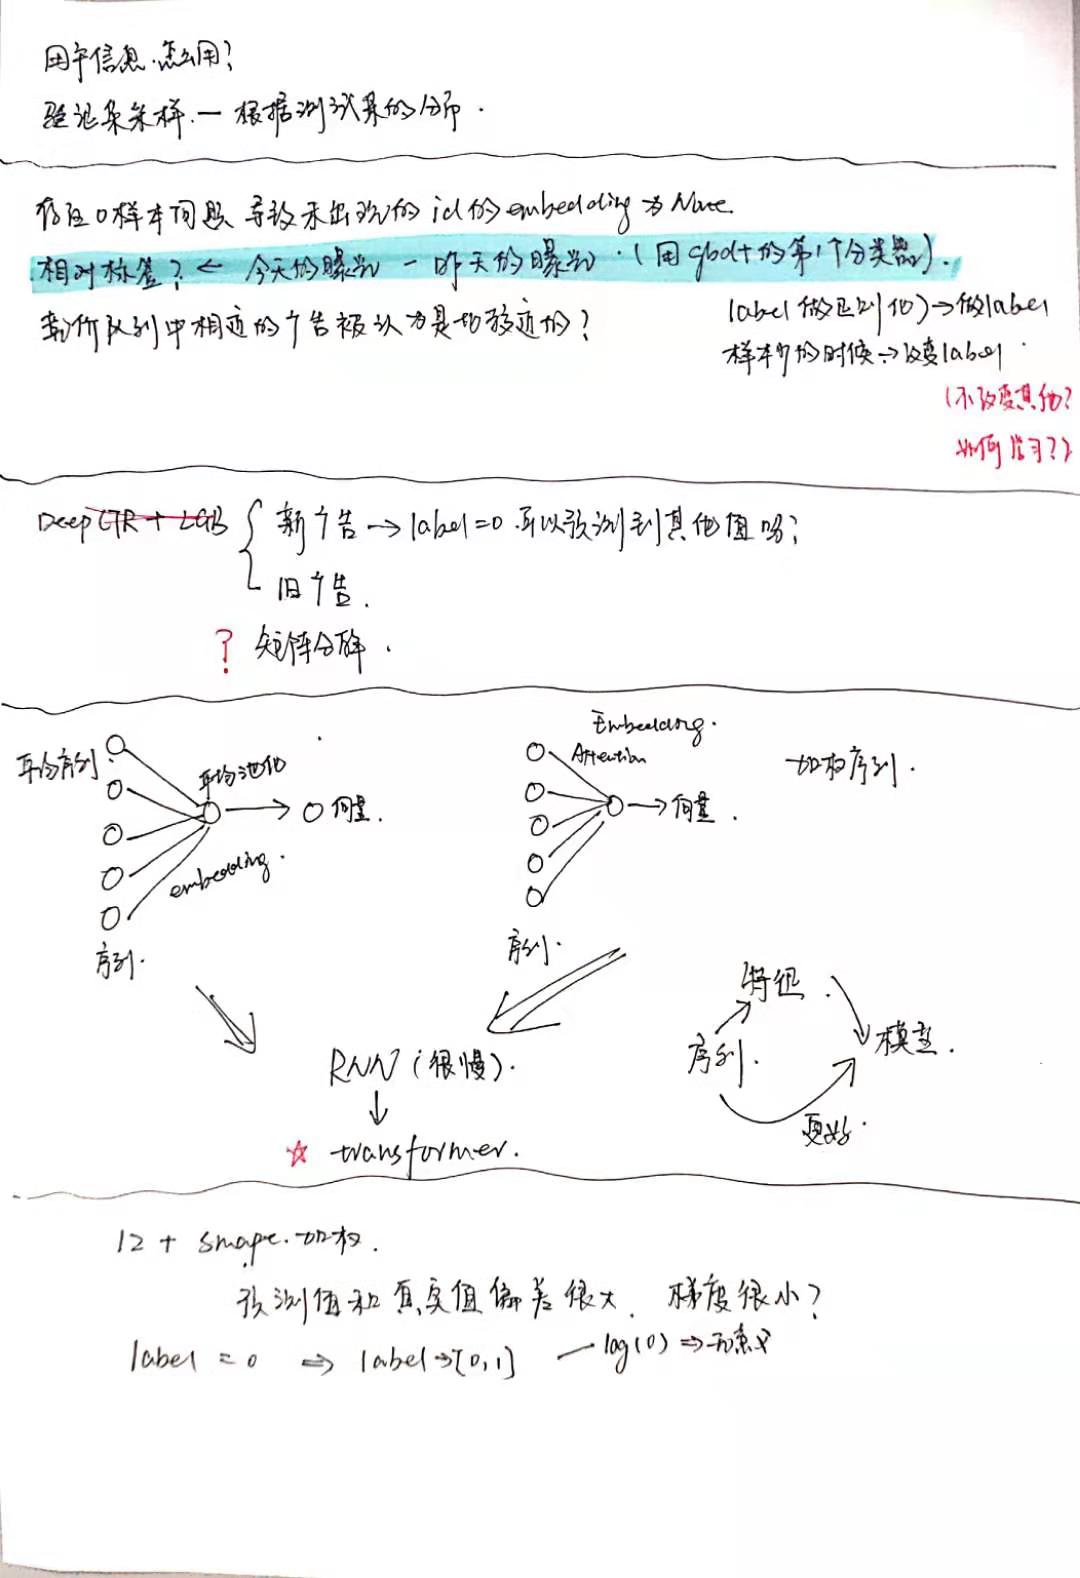 用户信息.怎么用?
验证集采样.一 根据测试集的分布.
存在0样本问题 导致未出现的id的embedding为None.
相对标签? ← 今天的曝光 - 昨天的曝光.(用gbdt的第1个分类器).
竞价队列中相近的广告被认为是比较近的?
label做区别化)→做label
样本的时候→改变label.
(不改变其他?
如何学习??
Deep CTR + LGB
新广告→label=0 可以预测到其他值吗?
旧广告.
? 矩阵分解.
平均序列.
平均池化
→ 向量.
embedding.
序列.
Embedding.
Attention
→向量.
序列.
加权序列.
RNN(很慢).
↓
☆ transformer.
特征.
序列.
模型.
更好.
12 + smape.加权.
预测值和真实值偏差很大. 梯度很小?
label = 0 ⇒ label→[0,1] — log(0)⇒无意义